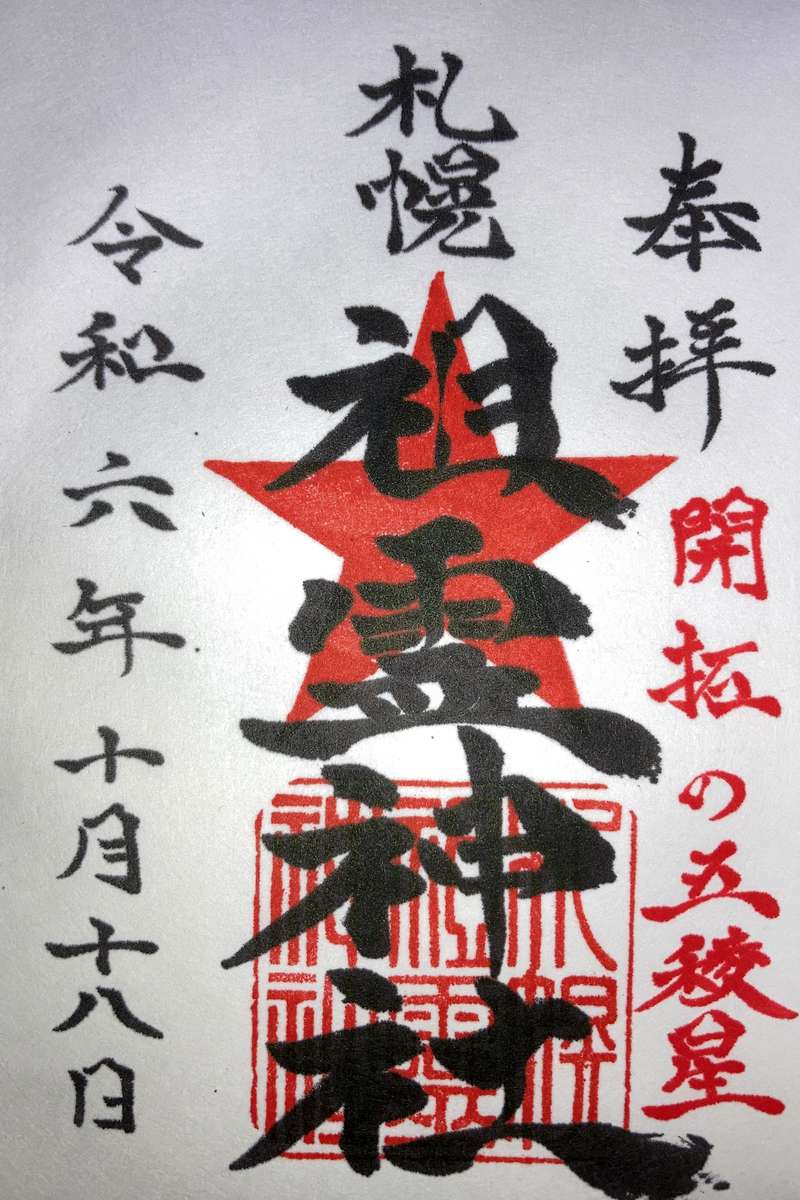 奉拝
開拓の五稜星
札幌
祖霊神社
令和六年十月十八日
札幌
祖霊
神社